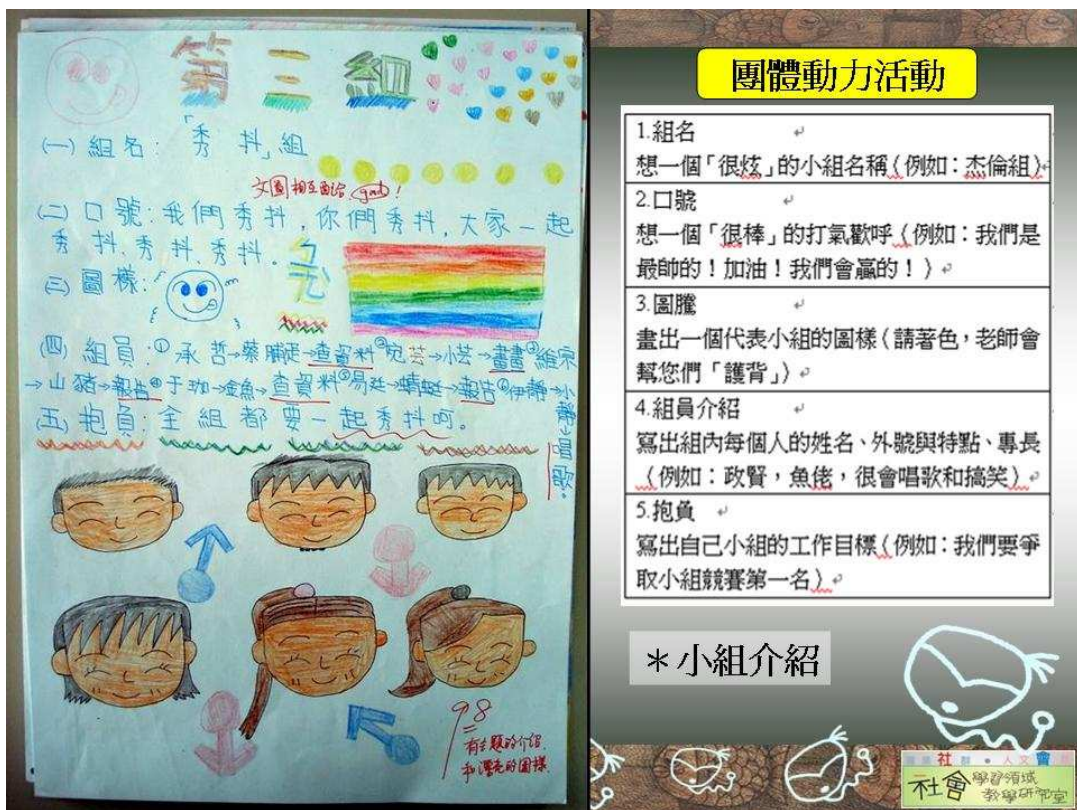 第三組
(一) 組名:「秀 抖」組
文圖相互配合, good!
(二) 口號:我們秀抖,你們秀抖,大家一起
秀抖、秀抖、秀抖。
(三) 圖樣:
(四) 組員:①承哲→蔡
→查資料②宛芸→小芸→畫畫③維宗
→山豬→報告④于珈→金魚→查資料⑤易廷→蜻蜓→報告⑥伊靜→小
靜→唱歌。
(五) 抱負:全組都要一起秀抖呵。
98
有主題的介紹,
和漂亮的圖樣
團體動力活動
1.組名
想一個「很炫」的小組名稱(例如:杰倫組)
2.口號
想一個「很棒」的打氣歡呼(例如:我們是
最帥的!加油!我們會贏的!)
3.圖騰
畫出一個代表小組的圖樣(請著色,老師會
幫您們「護背」)
4.組員介紹
寫出組內每個人的姓名、外號與特點、專長
(例如:政賢,魚佬,很會唱歌和搞笑)
5.抱負
寫出自己小組的工作目標(例如:我們要爭
取小組競賽第一名)
*小組介紹
社會 學習領域
教學研究室